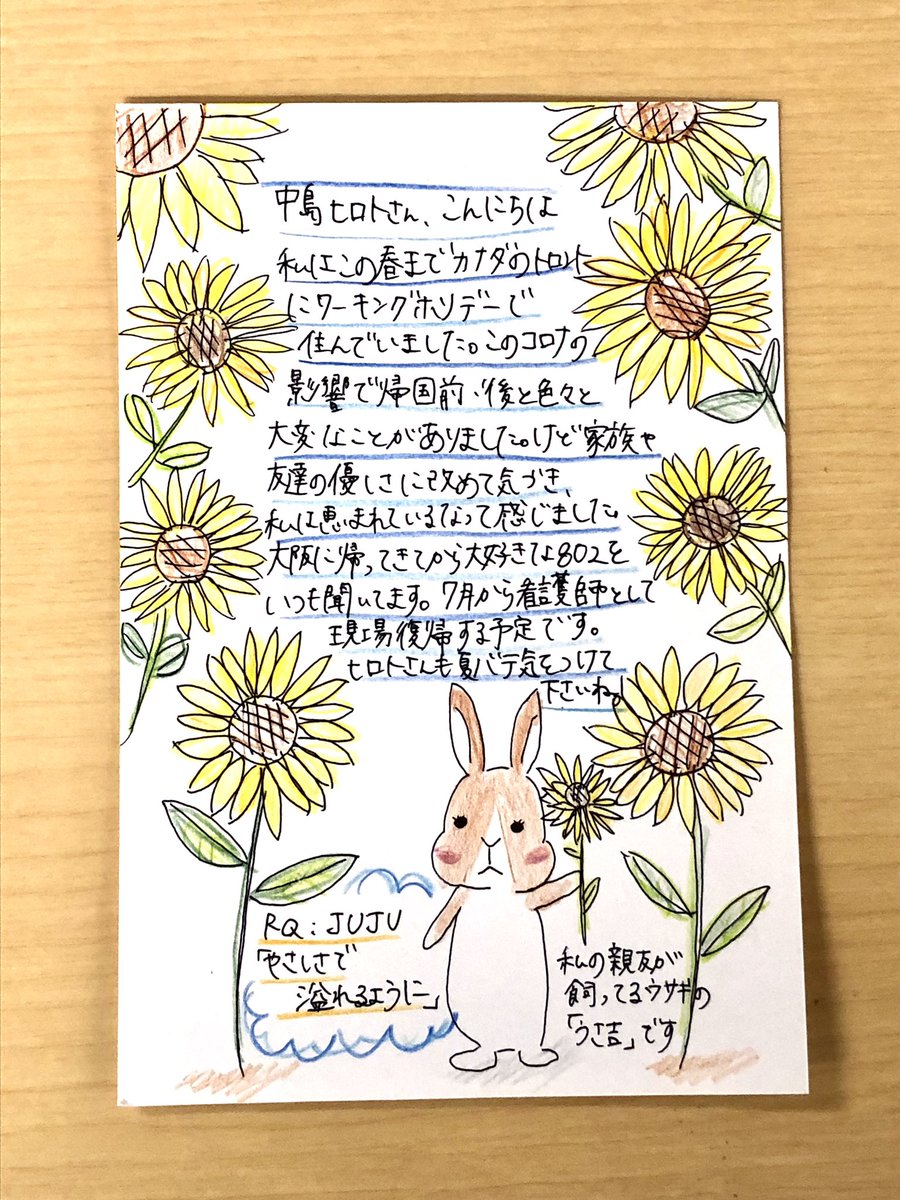 中島ヒロトさん、こんにちは
私はこの春までカナダのトロント
にワーキングホリデーで
住んでいました。このコロナの
影響で帰国前、後と色々と
大変なことがありました。けど家族や
友達の優しさに改めて気づき、
私は恵まれているなって感じました。
大阪に帰ってきてから大好きな802を
いつも聞いてます。7月から看護師として
現場復帰する予定です。
ヒロトさんも夏バテ気をつけて
下さいね。
RQ:JUJU
「やさしさで
溢れるように」
私の親友が
飼ってるウサギの
「うさ吉」です